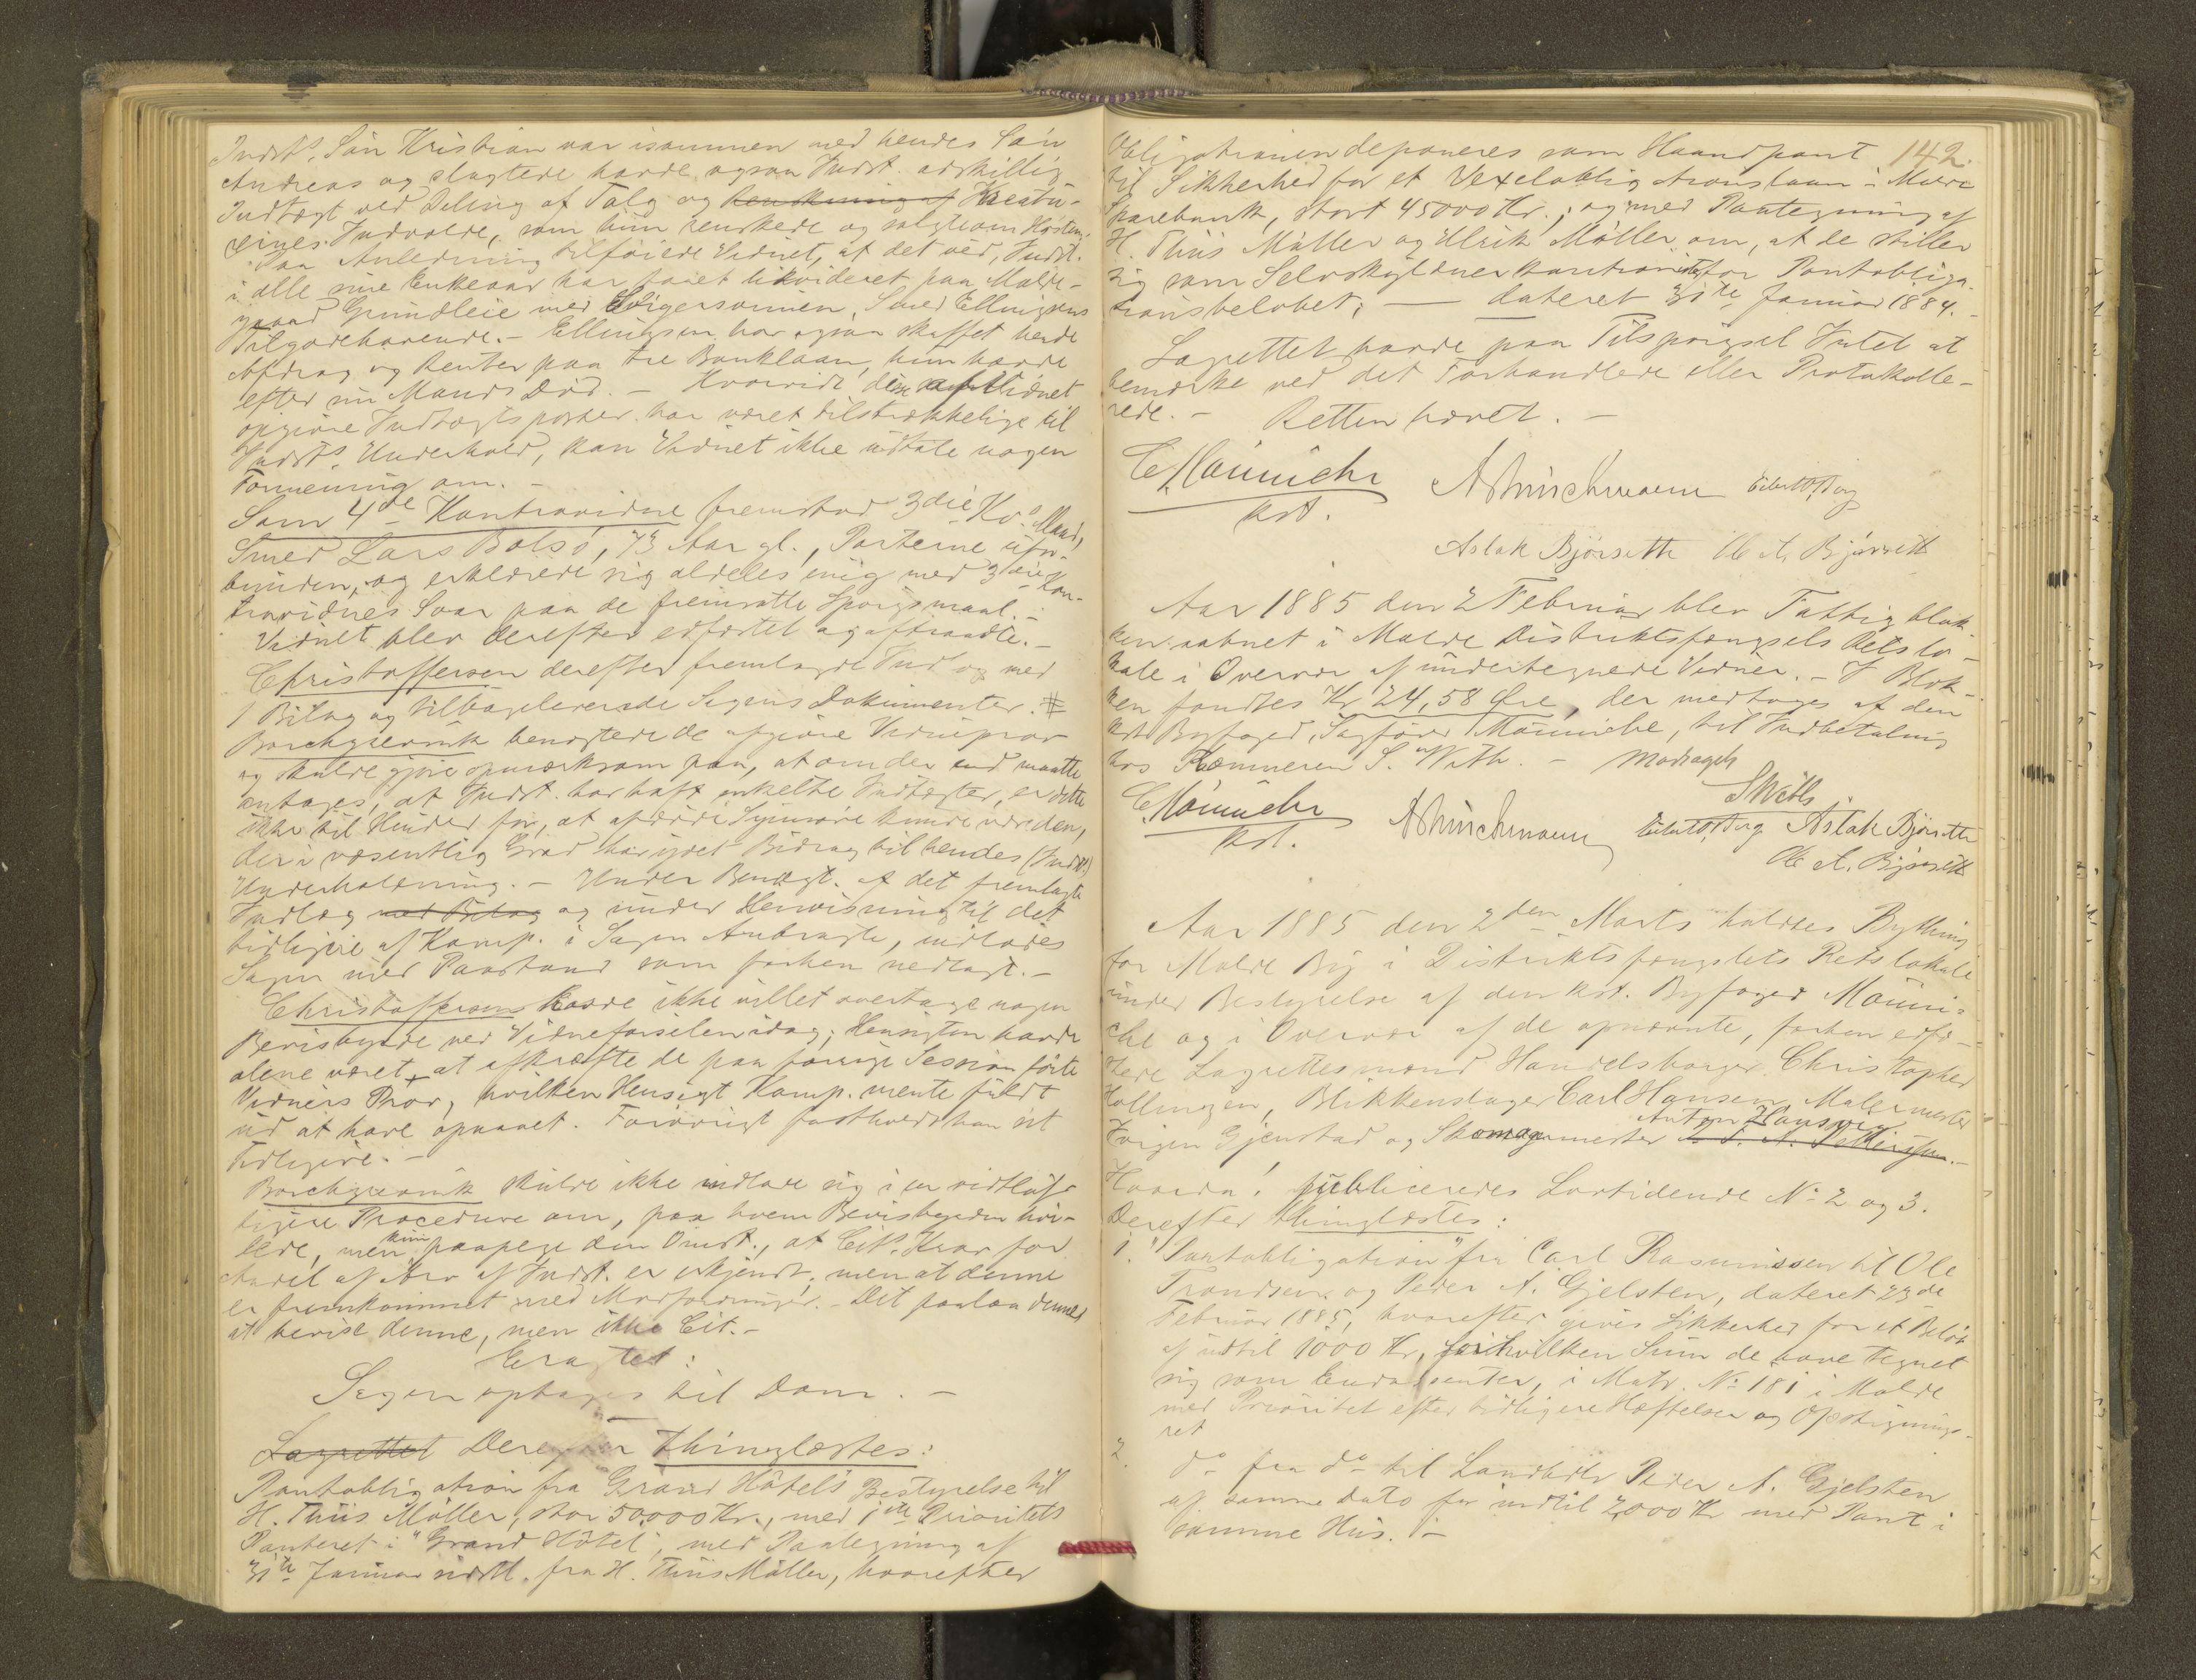 Indst's Sön Kristian var isammen med hendes Sön
Andreas og slagtede havde ogsaa Indst. adskillig
Indtægt ved Deling af Talg og Renskning af Kreatu-
rernes Indvolde, som hun renskede og solgte om Hösten.
Paa Anledning tilföiede Vidnet, at det ved, Indst.
i alle sine Enkeaar har faaet likvideret paa Molde-
gaard Grundleie med Svigersönnen, Smed Ellingsens
Tilgodehavende. - Ellingsen har ogsaa skaffet hende
Afdrag og Renter paa tre Banklaan, hun havde
efter sin Mands Död. - Hvorvidt disse af Vidnet
opgivne Indtægtsposter har været tilstrækkelige til
Indst's Underhold, kan Vidnet ikke udtale nogen
Formening om. -
Som 4de Kontravidne fremstod 3die Kv's Mand,
Smed Lars Bolsö, 73 Aar gl., Parterne ufor-
bunden, og erklærede sig aldeles enig med 3die Kon-
travidnes Svar paa de fremsatte Spörgsmaal. -
Vidnet blev derefter edfæstet og aftraadte. -
Christoffersen derefter fremlagde Indlæg med
1 Bilag og tilbageleverede Sagens Dokumenter. #
Borchgrevink benægtede de afgivne Vidneprov
og skulde gjøre opmærksom paa, at om der end maatte
antages, at Indst. har haft enkelte Indtægter, er dette
ikke til Hinder for, at afdöde Synnöve kunde være den,
der i væsentlig Grad har ydet Bidrag til hendes (Indst.)
Underholdning. - Under Benægt. af det fremlagte
Indlæg med Bilag og under Henvisning til det
tidligere af Komp. i Sagen Anbragte, indlodes
Sagen med Paastand som forhen nedlagt. -
Christoffersen havde ikke villet overtage nogen
Bevisbyrde ved Vidneførselen idag; Hensigten havde
alene været, at afkræfte de paa forrige Session förte
Vidners Prov, hvilken Hensigt Komp. mente fuldt
ud at have opnaaet. Forövrigt fastholdt han sit
Tidligere. -
Borchgrevink skulde ikke indlade sig i en vidtlöf-
tigere Procedure om, paa hvem Bevisbyrden hvi-
lede, men kun paapege den Omst., at Cit's Krav for
Andel af Arv af Indst. er erkjendt, men at denne
er fremkommet med Modfordringer. - Det paalaa denne
at bevise denne, men ikke Cit. -
Eragtet:
Sagen optages til Dom. -
Lagrettet Derefter thinglæstes:
Pantobligation fra Grand Hôtels Bestyrelse til
H. Thiis Möller, stor 50,000 Kr., med 1ste Prioritets
Panteret i "Grand Hôtel", med Paategning af
31te Januar sidstl. fra H. Thiis Möller, hvorefter
142.
Obligationen deponeres som Haandpant
til Sikkerhed for et Vexelobligationslaan i Molde
Sparebank, stort 45000 Kr.; og med Paategning af
H. Thiis Möller og Ulrik Möller om, at de stiller
sig som Selvskyldnerkautionister for Pantobliga-
tionsbelöbet; — dateret 31te Januar 1884. -
Lagrettet havde paa Tilspörgsel Intet at
bemærke ved det Forhandlede eller Protokolle-
rede. - Retten hævet. -
C Mönniche
kst.
Aslak Björseth Ole A. Björseth
Aar 1885 den 2 Februar blev Fattigblok-
ken aabnet i Molde Distriktsfængsels Retslo-
kale i Overvær af undertegnede Vidner. - I Blok-
ken fandtes Kr 24,58 Öre, der medtages af den
kst. Byfoged, Sagförer Mönniche, til Indbetaling
hos Kæmneren S. With. - Modtaget
SWith.
C Mönniche
kst.
Aslak Björseth
Ole A. Björseth
Aar 1885 den 2den Marts holdtes Bything
for Molde By i Distriktsfængslets Retslokale
under Bestyrelse af den kst. Byfoged Mönni-
che og i Overvær af de opnævnte, forhen edfæ-
stede Lagrettesmænd Handelsborger Christopher
Hollingen, Blikkenslager Carl Hansen, Malermester
Jörgen Gjenstad og Skomagermester Anton Hansen
Hvorda: publiceredes Lovtidende No 2 og 3.
Derefter thinglæstes:
1. "Pantobligation" fra Carl Rasmussen til Ole
Trondsen og Peder A. Gjelsten, dateret 23de
Februar 1885, hvorefter gives Sikkerhed for et Belöb
af indtil 1000 Kr, for hvilken Sum de have tegnet
sig som Endossenter, i Matr. No 181 i Molde
med Prioritet efter tidligere Hæftelser og Opstignings-
ret
2. do fra do til Landhdlr Peder A. Gjelsten
af samme Dato for indtil 2,000 Kr med Pant i
samme Hus. -